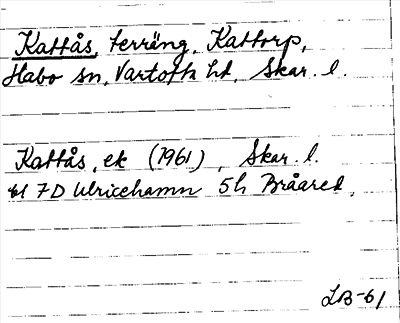 Kattås, terräng, Kattorp,
Habo sn, Vartofta hd, Skar. l.
Kattås, ek (1961), Skar. l.
bl 7D Ulricehamn 5h Bråared,
LB-61